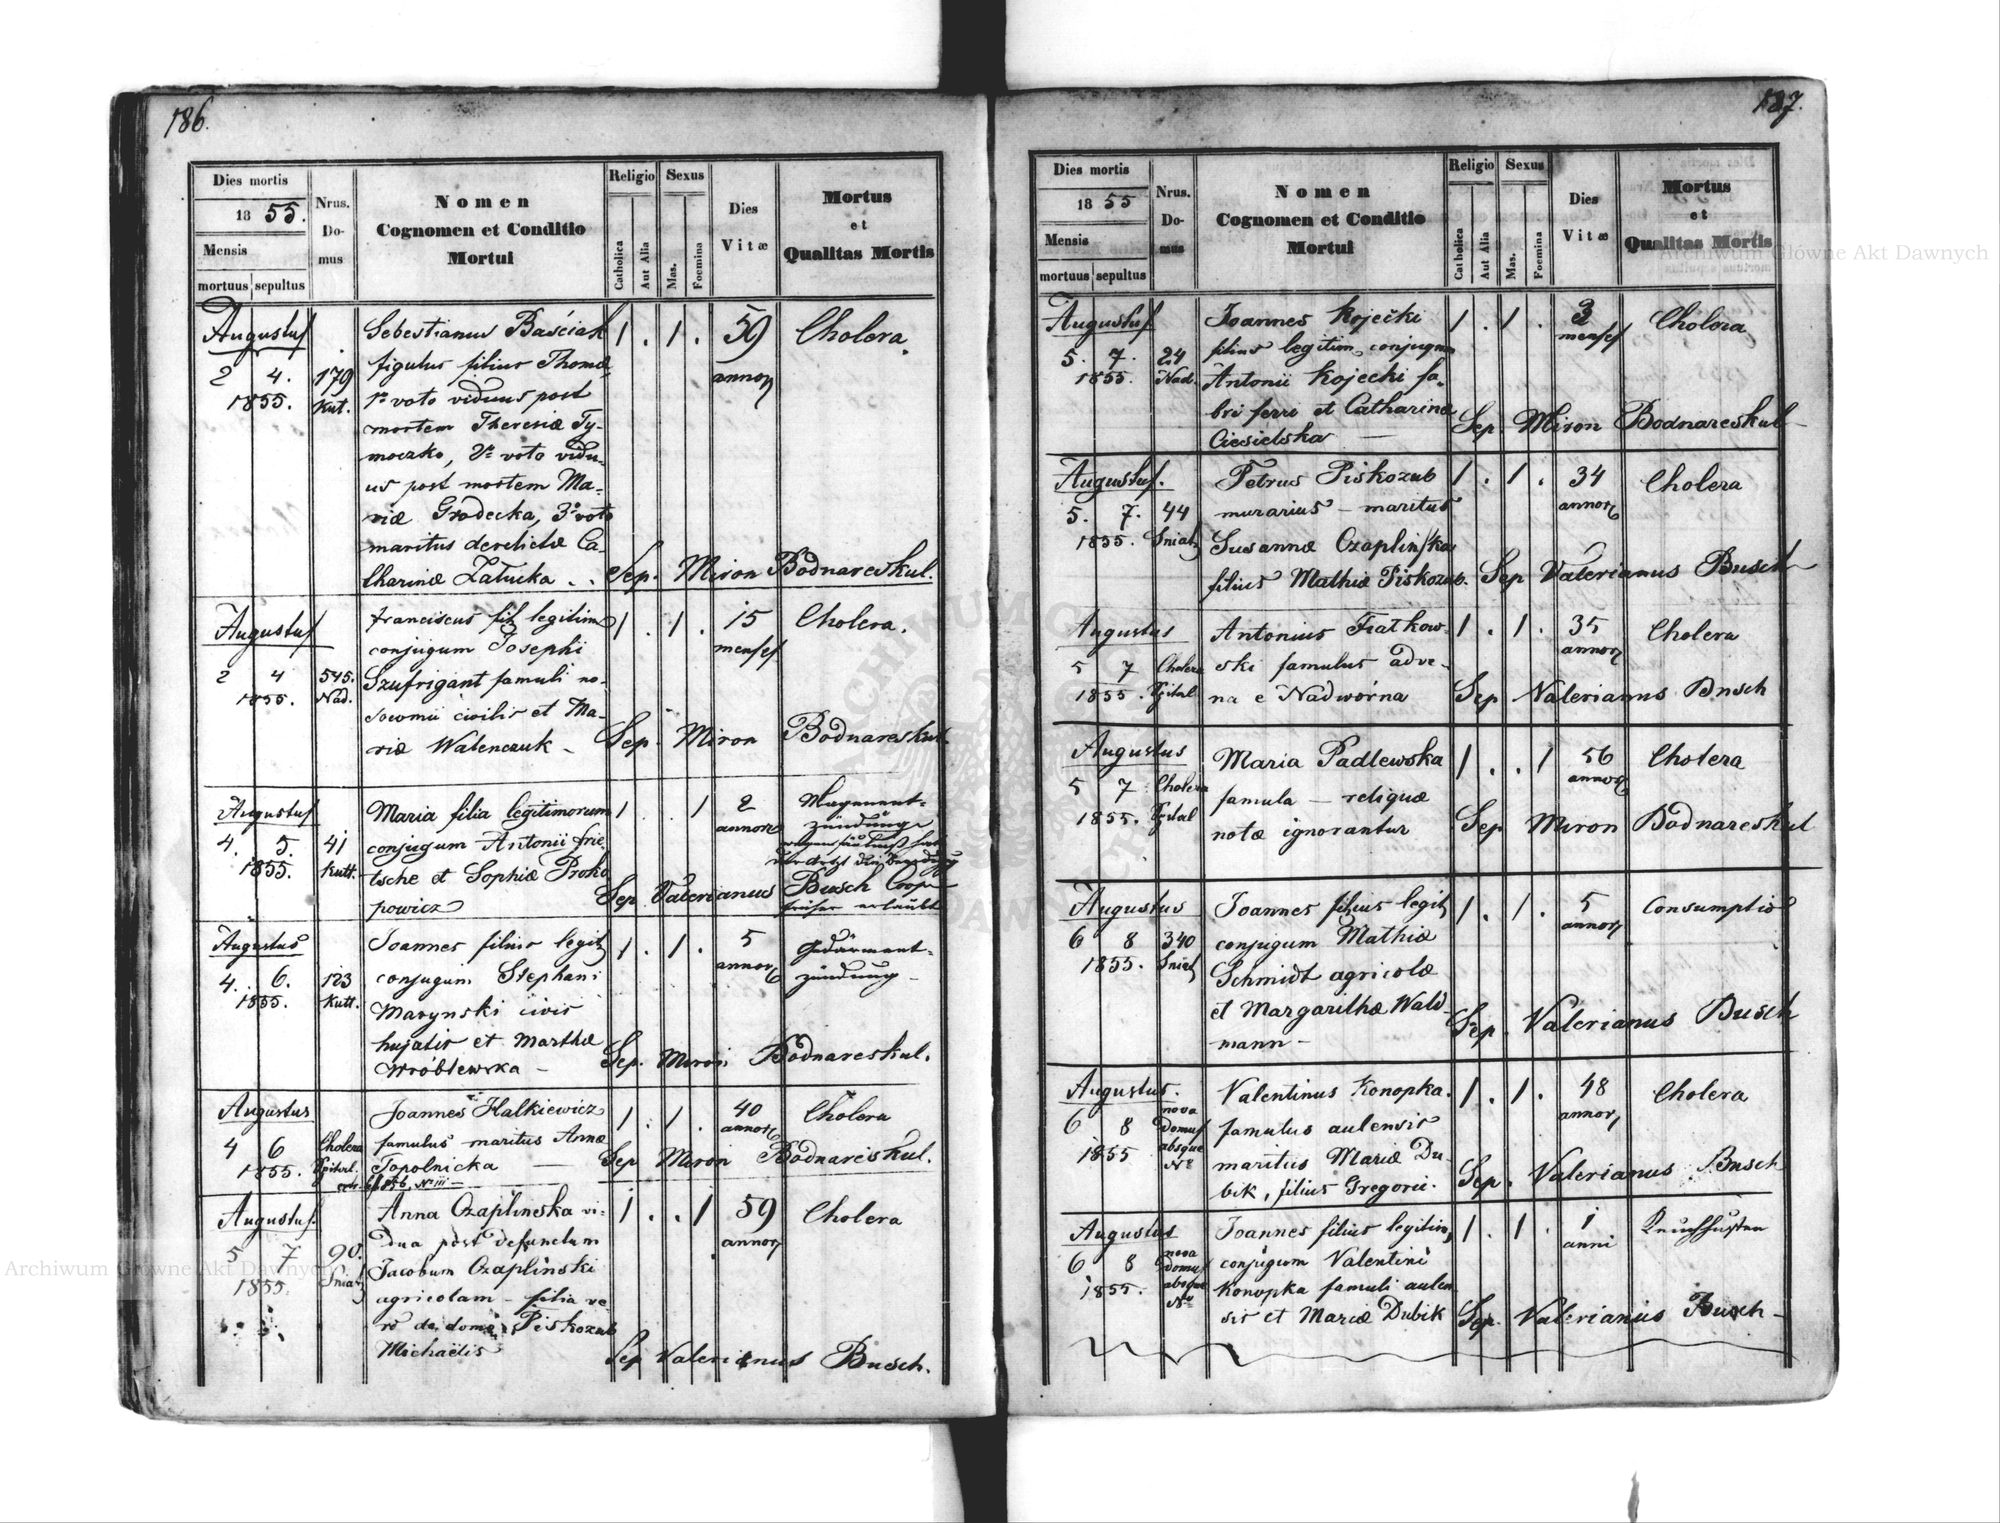 186.
Dies mortis
18 55.
Mensis
mortuus sepultus
Nrus. Do- mus
Nomen
Cognomen et Conditio
Mortui
Religio
Catholica
Aut Alia
Sexus
Mas.
Foemina
Dies
Vitæ
Mortus
et
Qualitas Mortis
Augustus
2 4.
1855.
179
Kut.
Sebestianus Baściak
figulus filius Thomæ,
1º voto viduus post
mortem Theresiæ Ty-
moczko, 2º voto vidu-
us post mortem Ma-
riæ Grodecka, 3º voto
maritus derelictæ Ca-
tharinæ Załucka . .
1 . 1 .
59
annor
Cholera.
Sep. Miron Bodnareskul.
Augustus
2 4
1855.
545.
Nad.
Franciscus fil legitim
conjugum Josephi
Szufrigant famuli no-
socomii civilis et Ma-
riæ Walenczuk -
1 . 1 .
15
menses
Cholera.
Sep. Miron Bodnareskul.
Augustus
4. 5.
1855.
41
Kutt.
Maria filia legitimorum
conjugum Antonii Frie-
tsche et Sophiæ Proko
powicz
1 . 1
2
annor
Magenent-
zündung
Sep. Valerianus Busch Coop
früher erlaubt
Augustus
4. 6.
1855.
123
Kutt.
Joannes filius legit
conjugum Stephani
Marynski civis
hujatis et Marthæ
Wróblewska -
1 . 1 .
5
annor
Gedärment-
zündung -
Sep. Miron Bodnareskul.
Augustus
4 6
1855.
Cholera
Spital.
Joannes Halkiewicz
famulus maritus Annæ
Topolnicka —
1 . 1 .
40
annor
Cholera
Sep Miron Bodnareskul.
Augustus
5 7
1855.
90.
Śniat
Anna Czaplinska vi-
dua post defunctum
Jacobum Czaplinski
agricolam - filia ve-
ro de domo Piskozub
Michaëlis
1 . . 1
59
annor
Cholera
Sep Valerianus Busch.
187.
Dies mortis
18 55
Mensis
mortuus sepultus
Nrus. Do- mus
Nomen
Cognomen et Conditio
Mortui
Religio
Catholica
Aut Alia
Sexus
Mas.
Foemina
Dies
Vitæ
Mortus
et
Qualitas Mortis
Augustus
5. 7.
1855.
24
Nad.
Joannes Kojecki
filius legitim conjugum
Antonii Kojecki fa-
bri ferri et Catharinæ
Ciesielska —
1 . 1 .
3
menses
Cholera
Sep. Miron Bodnareskul
Augustus.
5. 7.
1855.
44
Sniat
Petrus Piskozub
murarius - maritus
Susannæ Czaplinska
filius Mathiæ Piskozub.
1 . 1 .
34
annor
Cholera
Sep Valerianus Busch
Augustus
5 7
1855.
Cholera
Spital
Antonius Fiatkow-
ski famulus adve-
na e Nadworna
1 . 1 .
35
annor
Cholera
Sep Valerianus Busch
Augustus
5 7
1855.
Cholera
Spital
Maria Padlewska
famula — reliquæ
notæ ignorantur
1 . . 1
56
annor
Cholera
Sep Miron Bodnareskul
Augustus
6 8
1855.
340
Sniat
Joannes filius legit
conjugum Mathiæ
Schmidt agricolæ
et Margarithæ Wald-
mann -
1 . 1 .
5
annor
Consumptio
Sep. Valerianus Busch
Augustus.
6 8
1855
nova
domus
absque
Nº
Valentinus Konopka.
famulus aulensis
maritus Mariæ Du-
bik, filius Gregorii.
1 . 1 .
48
annor
Cholera
Sep. Valerianus Busch
Augustus
6 8
1855.
nova
domus
absque
Nº
Joannes filius legitim
conjugum Valentini
Konopka famuli aulen
sis et Mariæ Dubik
1 . 1 .
1
anni
Keuchhusten
Sep. Valerianus Busch -
Archiwum Główne Akt Dawnych
Archiwum Główne Akt Dawnych